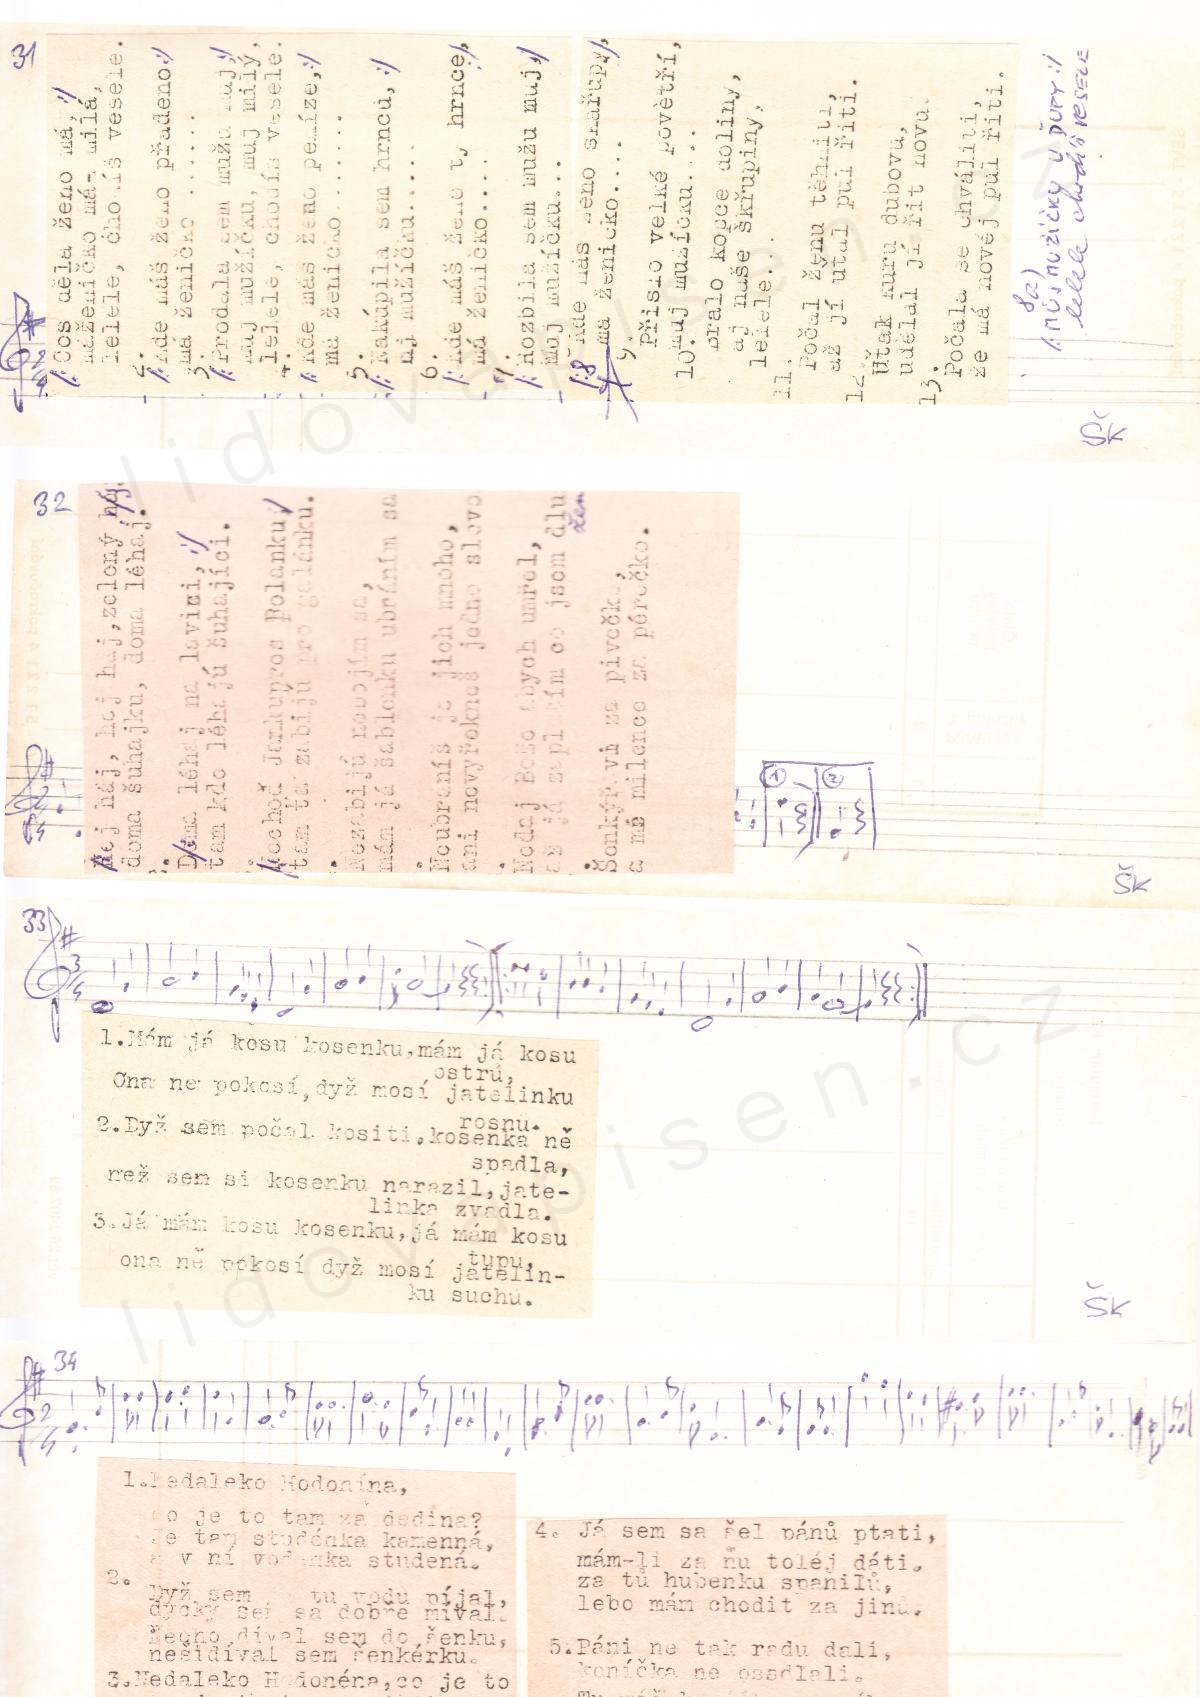 31
/: Cos děla ženo má, :/
máženičko má- milá,
lelele, chodíš vesele.
2. /: Kde máš ženo přadeno :/
má ženičko .....
3. /: Prodala sem mužu můj, :/
muj mužíčku, muj milý,
lelele, chodím vesele.
4. /: Kde máš ženo peníze, :/
má ženičko ......
5. /: Nakúpila sem hrnců, :/
mužíčku.....
6. /: Kde máš ženo hrnce, :/
má ženičko...
7. /: Rozbila sem mužu muj, :/
muj mužíčku...
/: 8 Kde máš ženo škařupy, :/
má ženičko....
9. Přišlo velké povětří,
muj mužíčku....
10. bralo kopce doliny,
aj naše škřupiny,
lelele...
11. Počal ženu těhniti,
až jí uťal pul řiti.
12. Uťak kuru dubovu,
udělal jí řit novu.
13. Počala se chváliti,
že má novéj pul řiti.
8a)
/: můj mužíčky u ďury :/
lelele chodíš vesele
ŠK
32
Hej háj, hoj haj, zelený háj :/
doma šuhajku, doma léhaj.
Doma léhaj na lavici, :/
tam kde léhajú šuhajíci.
Nechoď Jankupros Polanku, :/
tam ťa zabijú pro galánku.
Nezabijú nebojím sa,
mám já šablenku ubráním sa
Neubráníš je jich mnoho,
ani nevyřekneš jedno slovo
Nedaj Bože abych umřel,
až já zapl tím co jsem dlu
žen
Šenkýřovi za pivečko,
a mé milence za pérečko.
ŠK
33
1. Mám já kosu kosenku, mám já kosu
ostrú,
Ona ne pokosí, dyž mosí jatelinku
rosnú.
2. Dyž sem počal kositi, kosenka ně
spadla,
než sem si kosenku narazil, jate-
linka zvadla.
3. Já mám kosu kosenku, já mám kosu
tupú,
ona ně pokosí dyž mosí jatelin-
ku suchú.
ŠK
34
1. Nedaleko Hodonína,
co je to tam za dedina?
Je tam studénka kamenná,
a v ní voděnka studená.
2. Dyž sem tu vodu píjal,
dycky sem sa dobře míval.
Nechodíval sem do šenku,
nešidíval sem šenkérku.
3. Nedaleko Hodonéna, co je to
4. Já sem sa šel pánů ptati,
mám-li za ňu toléj dáti.
za tů huběnku spanilů,
lebo mám chodit za jinů.
5. Páni ne tak radu dali,
koníčka ne osedlali.
lidovapisen.cz
lidovapisen.cz